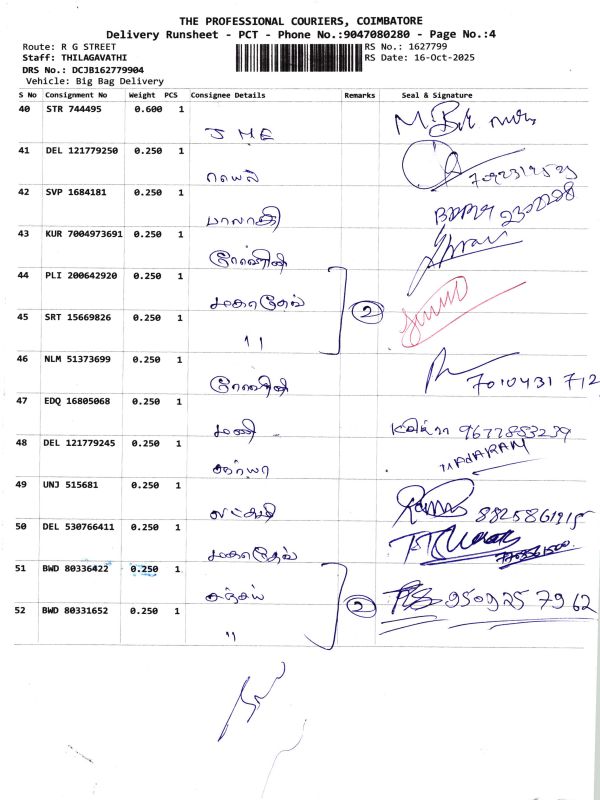 THE PROFESSIONAL COURIERS, COIMBATORE
Delivery Runsheet - PCT - Phone No.:9047080280 - Page No.:4
Route: R G STREET RS No.: 1627799
Staff: THILAGAVATHI RS Date: 16-Oct-2025
DRS No.: DCJB162779904
Vehicle: Big Bag Delivery
S No Consignment No Weight PCS Consignee Details Remarks Seal & Signature
40 STR 744495 0.600 1
J M E
41 DEL 121779250 0.250 1
42 SVP 1684181 0.250 1
பாலாஜி
43 KUR 7004973691 0.250 1
44 PLI 200642920 0.250 1
மகாதேவ் 2
45 SRT 15669826 0.250 1
11
46 NLM 51373699 0.250 1
7010431712
47 EDQ 16805068 0.250 1
மணி 9677883239
48 DEL 121779245 0.250 1
சூர்யா
49 UNJ 515681 0.250 1
லட்சுமி 8825861915
50 DEL 530766411 0.250 1
மகாதேவ்
51 BWD 80336422 0.250 1
சஞ்சய் 2 9509257962
52 BWD 80331652 0.250 1
"